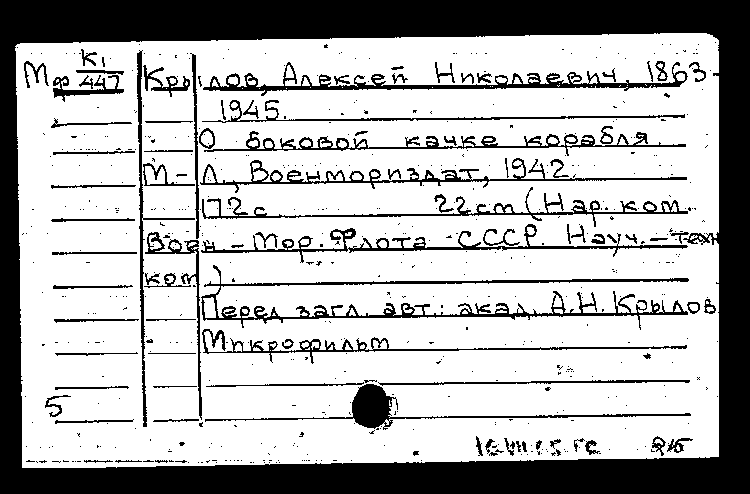 Мф К1/447 Крылов, Алексей Николаевич, 1863-
1945.
О боковой качке корабля.
М.-Л., Военмориздат, 1942.
172с 22cm (Нар. ком.
Воен.-Мор. Флота СССР. Науч.-техн
ком).
Перед загл. авт.: акад. А.Н. Крылов
Микрофильм
5